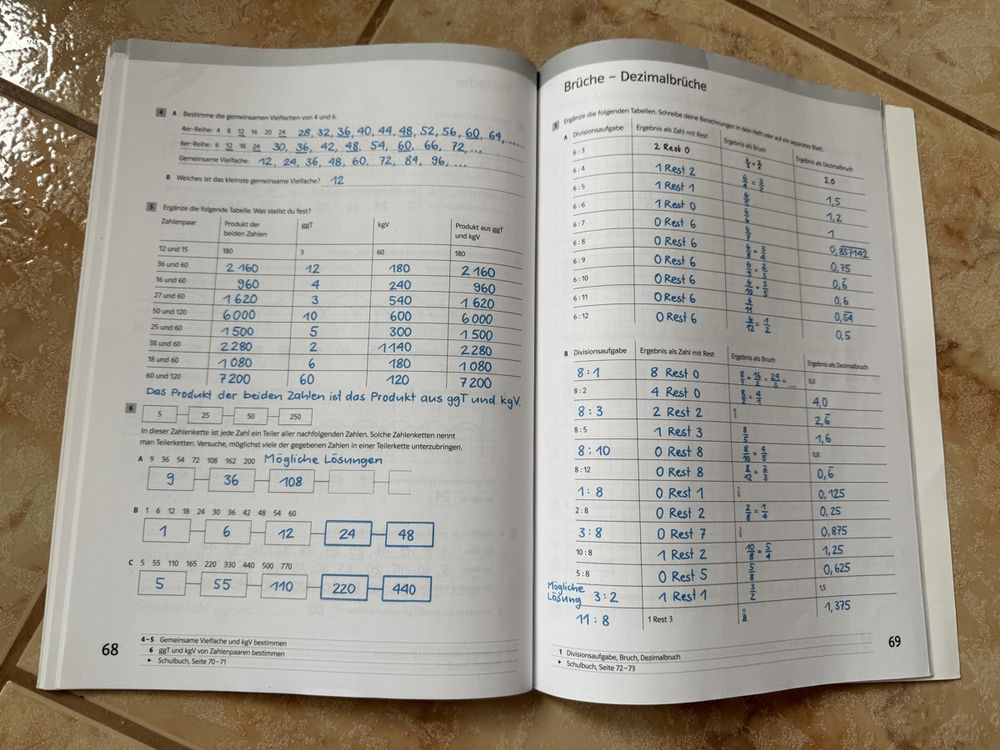 4 A Bestimme die gemeinsamen Vielfachen von 4 und 6.
4er-Reihe: 4 8 12 16 20 24 28, 32, 36, 40, 44, 48, 52, 56, 60, 64, ...
6er-Reihe: 6 12 18 24 30, 36, 42, 48, 54, 60, 66, 72, ...
Gemeinsame Vielfache: 12, 24, 36, 48, 60, 72, 84, 96, ...
B Welches ist das kleinste gemeinsame Vielfache? 12
5 Ergänze die folgende Tabelle. Was stellst du fest?
Zahlenpaar Produkt der beiden Zahlen ggT kgV Produkt aus ggT und kgV
12 und 15 180 3 60 180
36 und 60 2 160 12 180 2 160
16 und 60 960 4 240 960
27 und 60 1 620 3 540 1 620
50 und 120 6 000 10 600 6 000
25 und 60 1 500 5 300 1 500
38 und 60 2 280 2 1 140 2 280
18 und 60 1 080 6 180 1 080
60 und 120 7 200 60 120 7 200
Das Produkt der beiden Zahlen ist das Produkt aus ggT und kgV.
6 5 25 50 250
In dieser Zahlenkette ist jede Zahl ein Teiler aller nachfolgenden Zahlen. Solche Zahlenketten nennt
man Teilerketten. Versuche, möglichst viele der gegebenen Zahlen in einer Teilerkette unterzubringen.
A 9 36 54 72 108 162 200 Mögliche Lösungen
9 36 108
B 1 6 12 18 24 30 36 42 48 54 60
1 6 12 24 48
C 5 55 110 165 220 330 440 500 770
5 55 110 220 440
68
4–5 Gemeinsame Vielfache und kgV bestimmen
6 ggT und kgV von Zahlenpaaren bestimmen
▸ Schulbuch, Seite 70–71
Brüche – Dezimalbrüche
1 Ergänze die folgenden Tabellen. Schreibe deine Berechnungen in dein Heft oder auf ein separates Blatt.
A Divisionsaufgabe Ergebnis als Zahl mit Rest Ergebnis als Bruch Ergebnis als Dezimalbruch
6 : 3 2 Rest 0 2,0
6 : 4 1 Rest 2 6/4 = 3/2 1,5
6 : 5 1 Rest 1 6/5 1,2
6 : 6 1 Rest 0 6/6 1
6 : 7 0 Rest 6 6/7 0,857142
6 : 8 0 Rest 6 6/8 = 3/4 0,75
6 : 9 0 Rest 6 6/9 = 2/3 0,6̅
6 : 10 0 Rest 6 6/10 = 3/5 0,6
6 : 11 0 Rest 6 6/11 0,54
6 : 12 0 Rest 6 6/12 = 1/2 0,5
B Divisionsaufgabe Ergebnis als Zahl mit Rest Ergebnis als Bruch Ergebnis als Dezimalbruch
8 : 1 8 Rest 0 8/1 = 16/2 = 24/3 = ... 8,0
8 : 2 4 Rest 0 8/2 = 4/1 4,0
8 : 3 2 Rest 2 2,6̅
8 : 5 1 Rest 3 8/5 1,6
8 : 10 0 Rest 8 8/10 = 4/5 0,8
8 : 12 0 Rest 8 8/12 = 2/3 0,6̅
1 : 8 0 Rest 1 0,125
2 : 8 0 Rest 2 2/8 = 1/4 0,25
3 : 8 0 Rest 7 0,875
10 : 8 1 Rest 2 10/8 = 5/4 1,25
5 : 8 0 Rest 5 5/8 0,625
Mögliche Lösung 3 : 2 1 Rest 1 3/2 1,5
11 : 8 1 Rest 3 11/8 1,375
1 Divisionsaufgabe, Bruch, Dezimalbruch
▸ Schulbuch, Seite 72–73
69